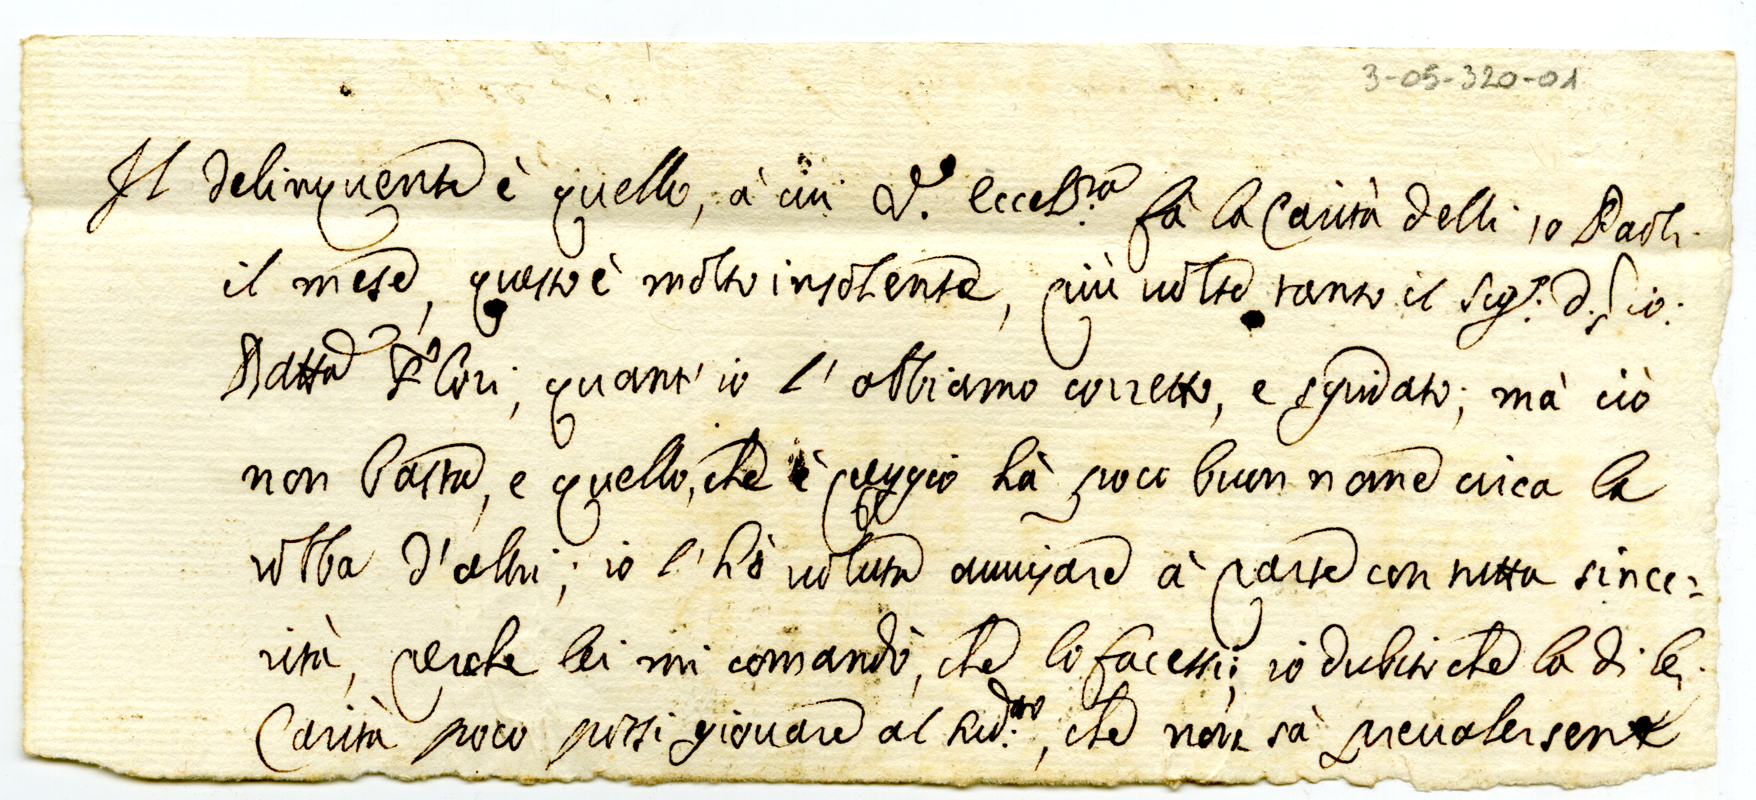 3-05-320-01
Il delinquente è quello, à cui V. Eccel.za fà la Carità delli 10 Paoli
il mese, questo è molto insolente, più volte tanto il Sig.r D. Gio:
Batta Flori, quant' io l' abbiamo corretto, e sgridato; mà ciò
non basta, e quello, che è peggio hà poco buon nome circa la
robba d'altri; io l' hò voluta avvisare à parte con tutta since=
rità, perche lei mi comandò, che lo facessi; io dubito che la di lei
Carità poco possi giovare al sud.to, che non sà prevalersene